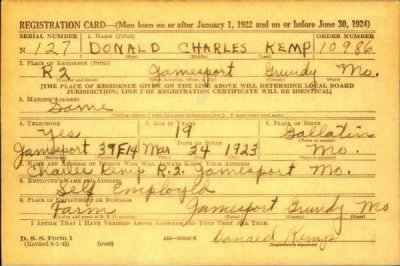 REGISTRATION CARD—(Men born on or after January 1, 1922 and on or before June 30, 1924)
SERIAL NUMBER 1. NAME (Print) ORDER NUMBER
N 127 DONALD CHARLES KEMP 10986
2. PLACE OF RESIDENCE (Print)
R 2 Jamesport Grundy Mo.
[THE PLACE OF RESIDENCE GIVEN ON THE LINE ABOVE WILL DETERMINE LOCAL BOARD
JURISDICTION; LINE 2 OF REGISTRATION CERTIFICATE WILL BE IDENTICAL]
3. MAILING ADDRESS
Same
4. TELEPHONE 5. AGE IN YEARS 6. PLACE OF BIRTH
Yes 19 Gallatin
DATE OF BIRTH
Jamesport 39F14 Mar 24 1923 Mo.
7. NAME AND ADDRESS OF PERSON WHO WILL ALWAYS KNOW YOUR ADDRESS
Charles Kemp R.2. Jamesport Mo.
8. EMPLOYER'S NAME AND ADDRESS
Self Employed
9. PLACE OF EMPLOYMENT OR BUSINESS
Farm Jamesport Grundy Mo
I AFFIRM THAT I HAVE VERIFIED ABOVE ANSWERS AND THAT THEY ARE TRUE.
D. S. S. Form 1
Donald Kemp